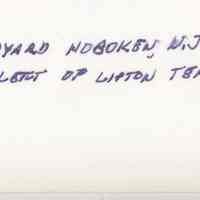 YARD HOBOKEN, N.J
LEFT OF LIPTON TEA